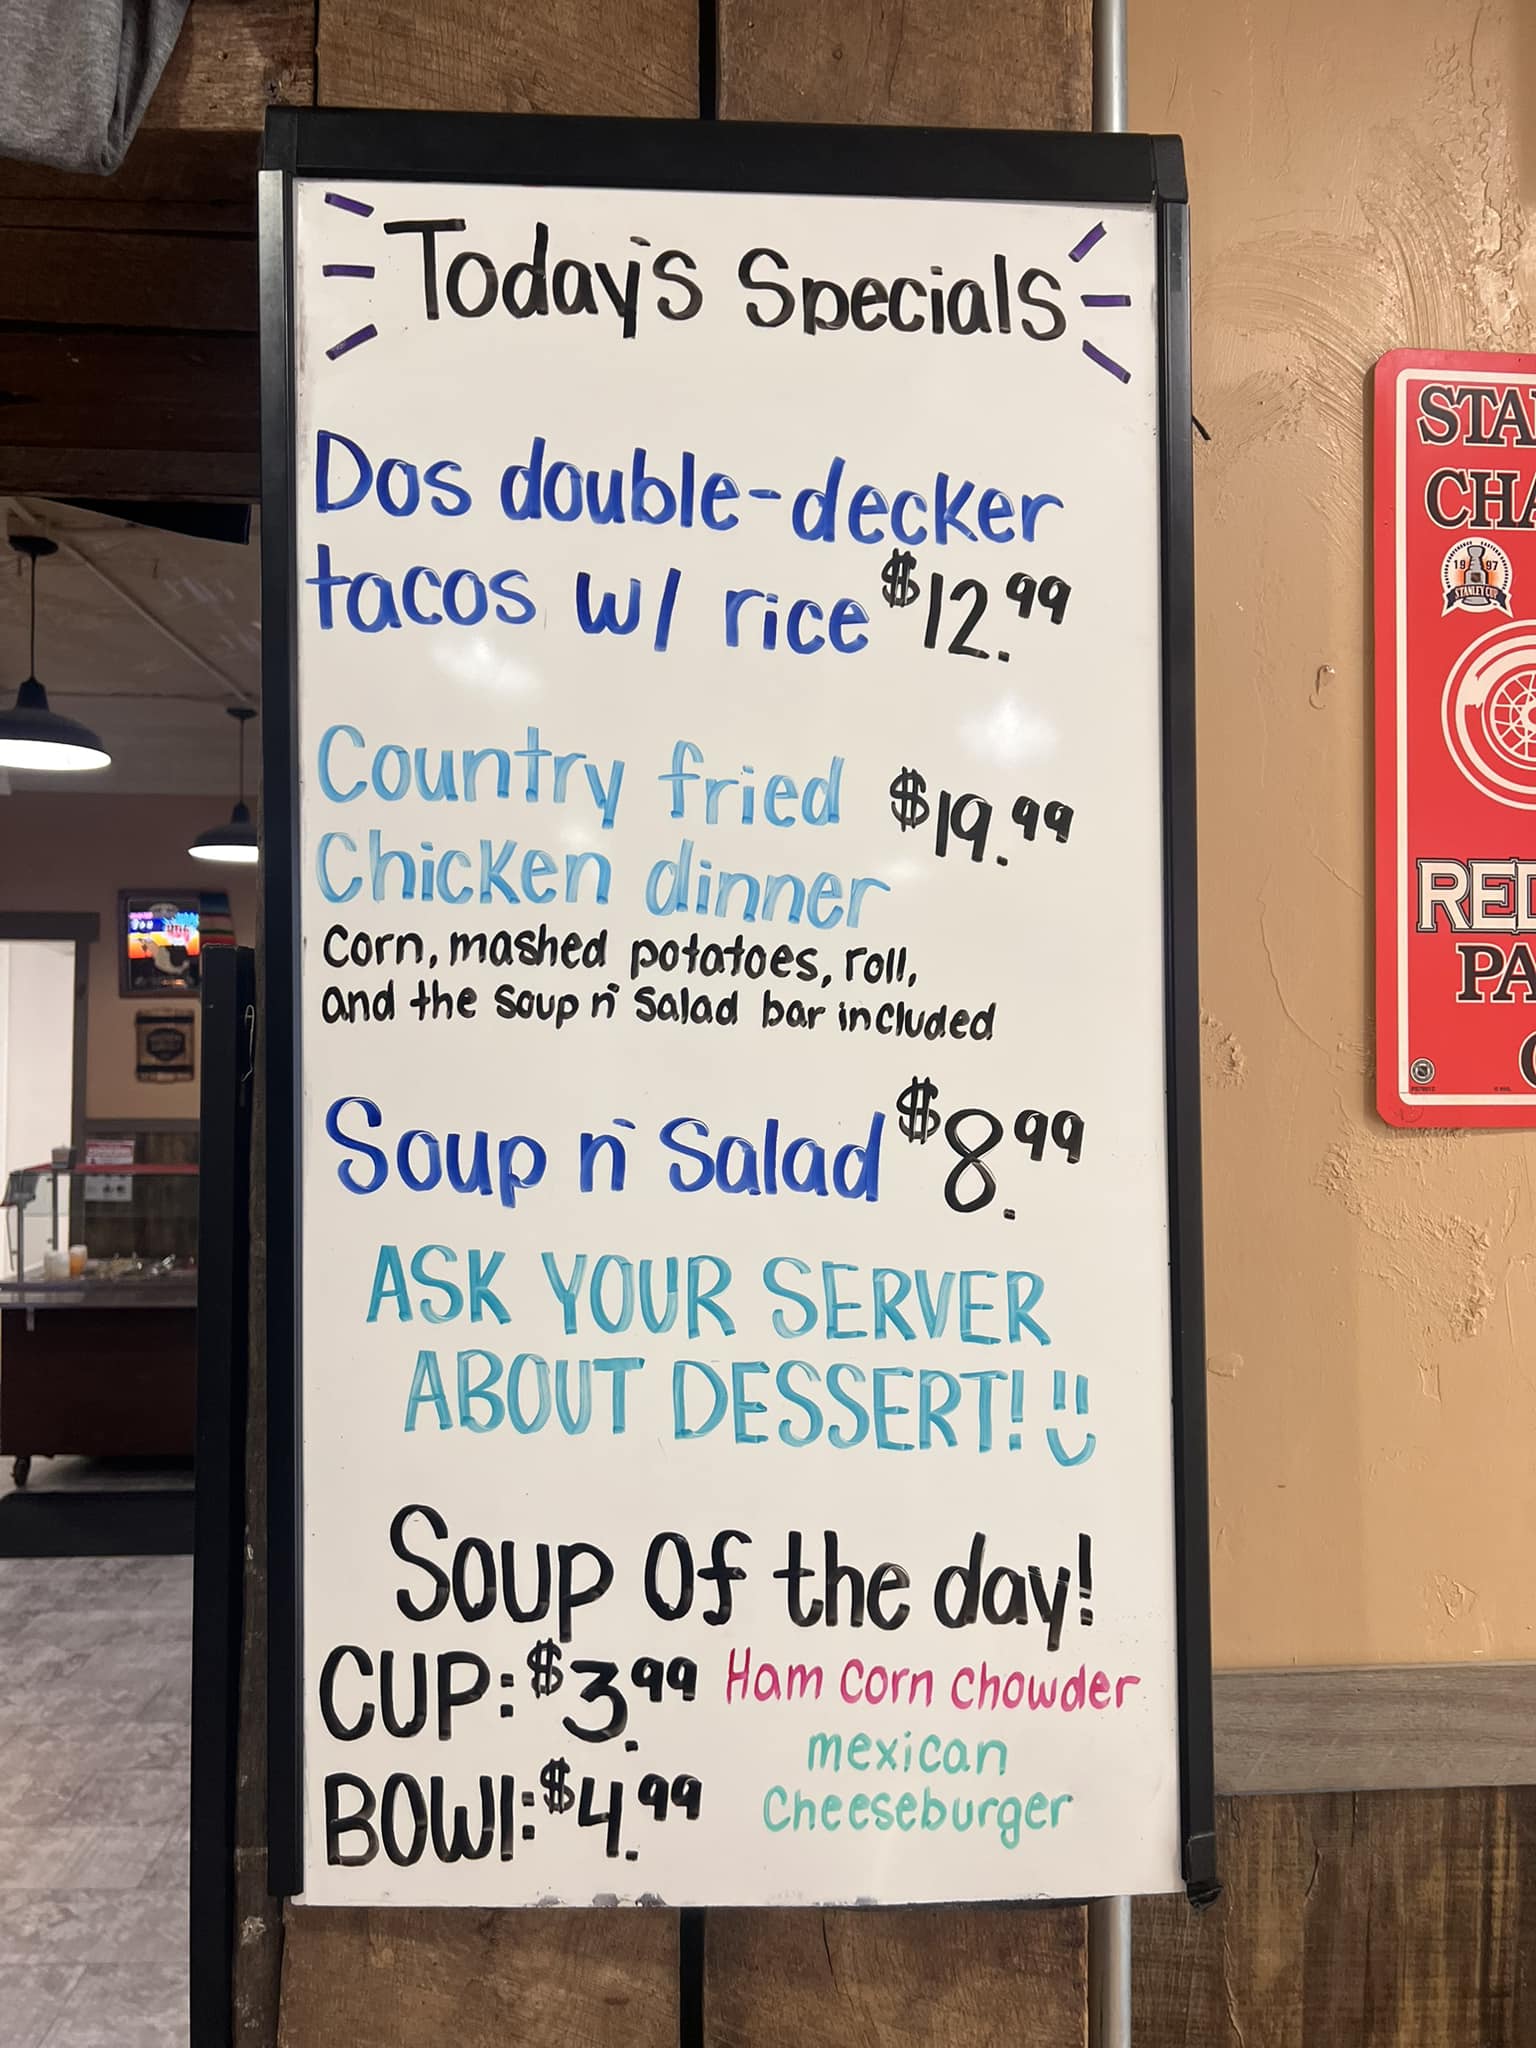 Today's Specials
Dos double-decker
tacos w/ rice $12.99
Country fried $19.99
Chicken dinner
Corn, mashed potatoes, roll,
and the soup n' salad bar included
Soup n' Salad $8.99
ASK YOUR SERVER
ABOUT DESSERT!
Soup Of the day!
CUP: $3.99 Ham Corn Chowder
mexican
BOWl: $4.99 Cheeseburger
STA
CHA
19 97
STANLEY CUP
RED
PA